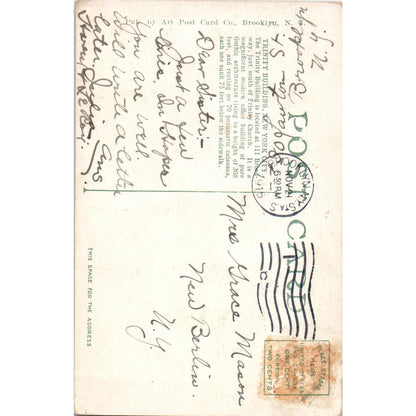 Pub. by Art Post Card Co., Brooklyn, N.
POST CARD
TRINITY BUILDING, NEW YORK CITY.
The Trinity Building is located at 111 Broad-
way, just south of Trinity Church. It is a
magnificent modern office building of pure
Gothic architecture rising to a height of 308
feet, and resting on 70 pneumatic caissons,
each one sunk 75 feet below the sidewalk.
Dear Sister:-
Just a few
Lines In Hopes
You are well
Will write a letter
Later,
NOV 2
6 30 PM
THIS SPACE FOR THE ADDRESS
Mrs Grace Mason
New Berlin
N.Y.
PLACE STAMP
HERE
UNITED STATES
AND CANADA
ONE CENT
FOREIGN
TWO CENTS